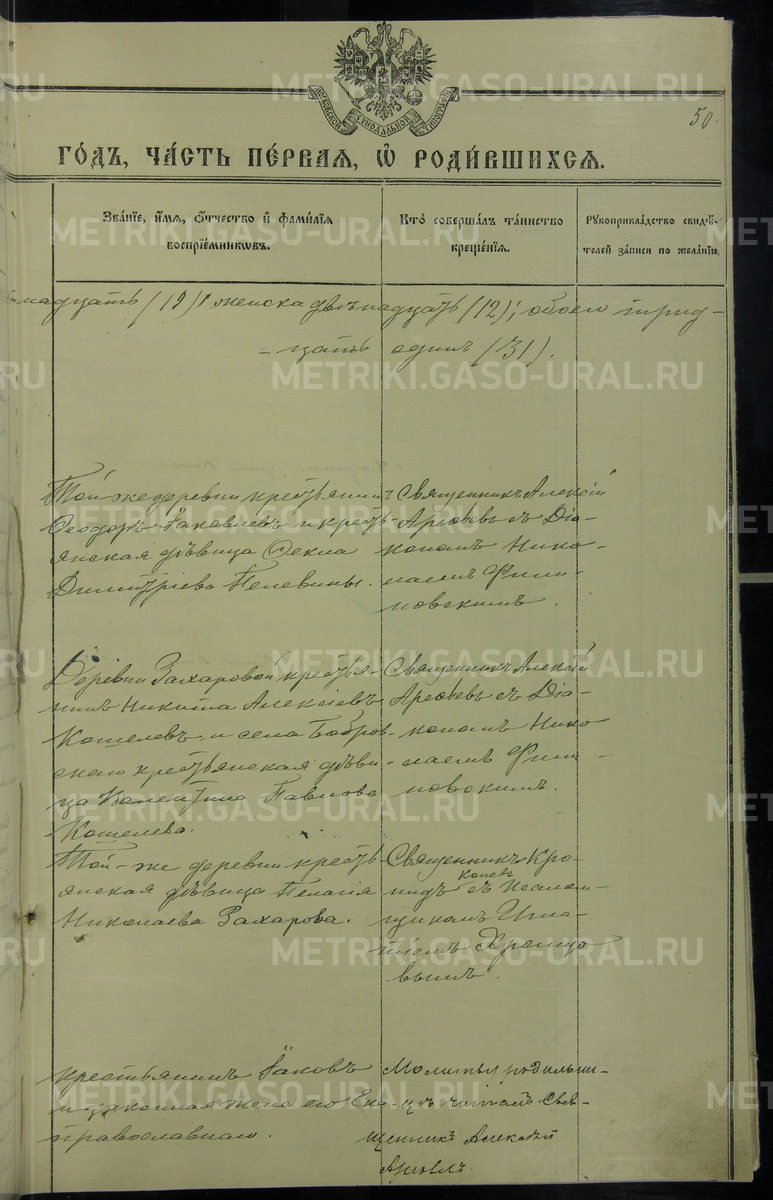 METRIKI.GASO-URAL.RU
МОСКОВСКОЙ СѴНОДАЛЬНОЙ ТИПОГРАФІИ
50.
ГО́ДЪ, ЧА́СТЬ ПЕ́РВАЯ, Ѡ РОДИ́ВШИХСЯ.
Зва́нїе, и́мѧ, ѻ́тчество и҆ фамі́лїѧ воспрїе́мникѡвъ.
Кто̀ соверша́лъ та́инство креще́нїѧ.
Рꙋкоприкла́дство свидѣ́телей за́писи по жела́нїю.
надцать (19) женска двѣнадцать (12); обоего трид-
цать одинъ (31).
Той-же деревни крестьянинъ
Ѳеодоръ Іаковлевъ и кресть-
янская дѣвица Ѳекла
Димитріева Пелевины.
Священникъ Алексій
Арефьевъ съ Діа-
кономъ Нико-
лаемъ Фили-
повскимъ.
Деревни Захаровой крестья-
нинъ Никита Алексіевъ
Кошелевъ и села Бобров-
скаго крестьянская дѣви-
ца Валентина Павлова
Кошелева.
Священникъ Алексій
Арефьевъ съ Діа-
кономъ Нико-
лаемъ Фили-
повскимъ.
Той-же деревни кресть-
янская дѣвица Пелагія
Николаева Захарова.
Священникъ Кро-
нидъ Коневъ съ Псалом-
щикомъ Игна-
тіемъ Храмцо-
вымъ.
крестьянинъ Іаковъ
и законная жена его Ека-
православнаго.
Молитвы родильни-
цѣ читалъ Свя-
щенникъ Алексій